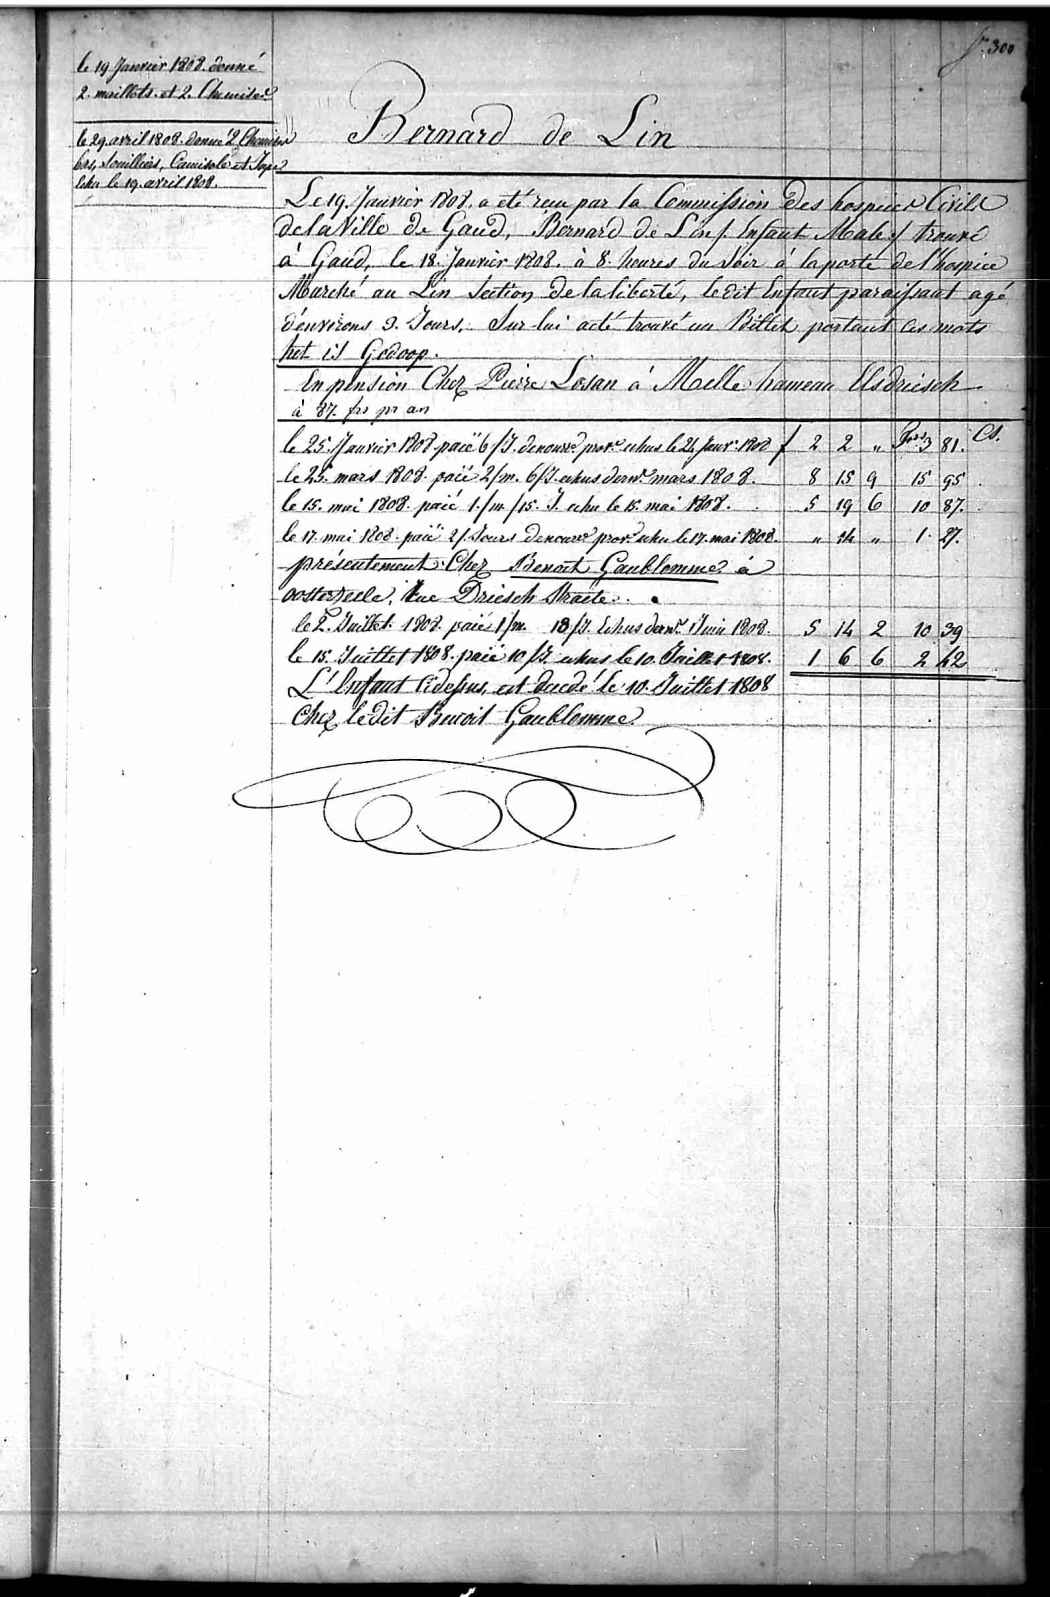 f.º 300
le 19 Janvier 1808. donné
2. maillots. et 2. Chemises
le 29. avril 1808. donné 2 Chemises
bas, Souilliers, Camisole et Jupe
Echu le 19. avril 1808.
Bernard de Lin
Le 19. Janvier 1808. a eté recu par la Commission des hospices Civils
de la Ville de Gand, Bernard de Lin / Enfant Male / trouvé
à Gand, le 18. Janvier 1808. à 8. heures du Soir à la porte de l'hospice
Marché au Lin Section de la liberté, le dit Enfant paraissant agé
d'environs 9. Jours. Sur lui a eté trouvé un Billet portant ces mots
het is Gedoop.
En pension Chez Pierre Losan à Melle hameau Elsdriesch
à 87. frs pr an
le 25. Janvier 1808 paié 6/J. de nourre provre echus le 24 Janvr 1808 f 2 2 „ Frs 3 81. Cs.
le 25. mars 1808. paié 2/m. 6/J. echus dernr mars 1808. 8 15 9 15 95
le 15. mai 1808. paié 1./m /15. J. echu le 15. mai 1808. 5 19 6 10 87.
le 17. mai 1808. paié 2/. Jours de nourre provre echu le 17. mai 1808 „ 14 „ 1. 27.
présentement Chez Benoit Gaublomme à
oosterzele, Rue Driesch Straete.
le 2. Juillet 1808. paié 1/m. 18/J. Echus dernr. Juin 1808. 5 14 2 10 39
le 15. Juillet 1808. paié 10/J. echus le 10. Juillet 1808. 1 6 6 2 42
L'Enfant Cidessus, est decedé le 10. Juillet 1808
Chez le dit Benoit Gaublomme.